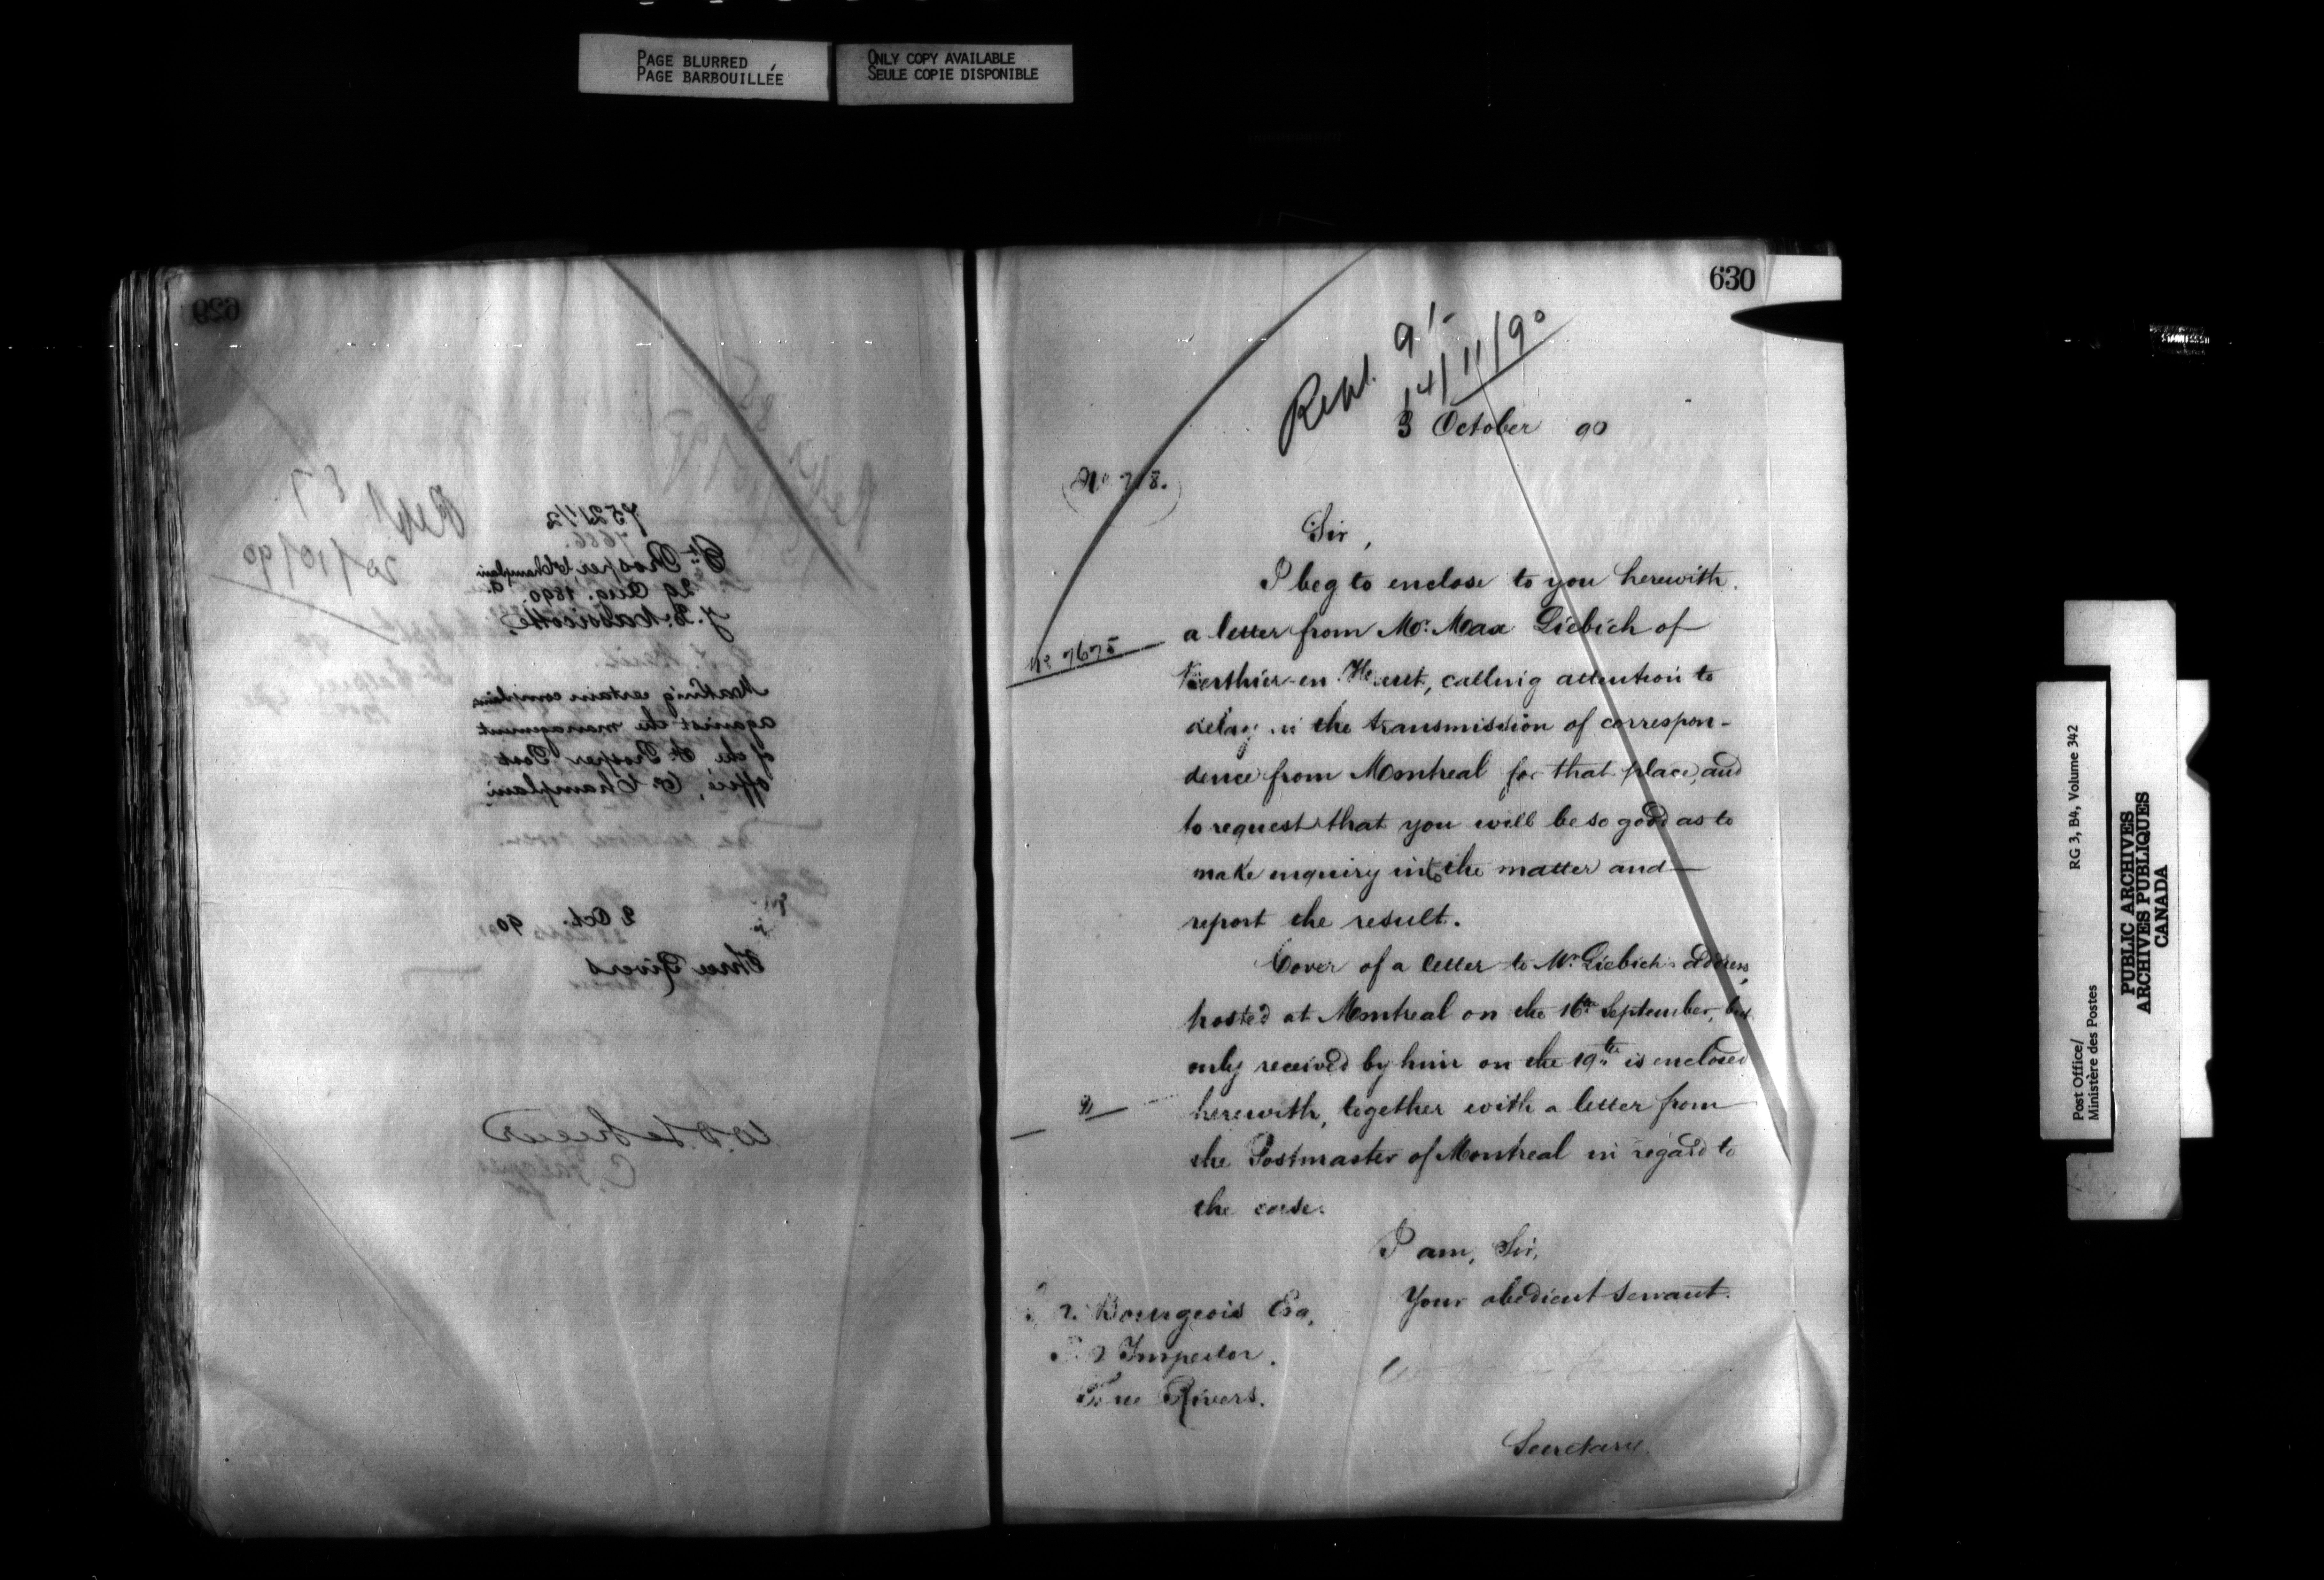 PAGE BLURRED
PAGE BARBOUILLÉE
ONLY COPY AVAILABLE
SEULE COPIE DISPONIBLE
629
Rept
20/10/90
7521 1/2
7666.
St. Prosper, Co Champlain
29 Aug. 1890
Making certain complaints
against the management
of the St. Prosper Post
Office, Co. Champlain
2 Oct. 90
Three Rivers
W. D. LeSueur
630
Rept. 91-
14/11/90
3 October 90
(No 718.)
Sir,
I beg to enclose to you herewith
No 7675
a letter from Mr. Max Liebich of
Berthier-en-Haut, calling attention to
delay in the transmission of correspon-
dence from Montreal for that place, and
to request that you will be so good as to
make enquiry into the matter and
report the result.
Cover of a letter to Mr. Liebich's address,
posted at Montreal on the 16th September, but
only received by him on the 19th is enclosed
herewith, together with a letter from
the Postmaster of Montreal in regard to
the case.
I am, Sir,
Your obedient servant.
Bourgeois Esq,
Inspector.
Three Rivers.
Secretary.
Post Office/
Ministère des Postes
RG 3, B4, Volume 342
PUBLIC ARCHIVES
ARCHIVES PUBLIQUES
CANADA